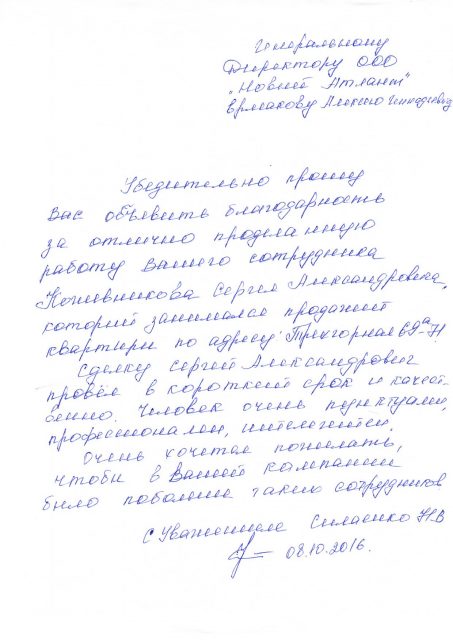 Генеральному
Директору ООО
"Новый Атлант"
Ермакову Алексею Геннадьевичу
Убедительно прошу
Вас объявить благодарность
за отлично проделанную
работу Вашего сотрудника
Сергея Александровича,
который занимался продажей
квартиры по адресу: Трехгорная
Сделку Сергей Александрович
провёл в короткий срок и качест-
венно. Человек очень пунктуален,
профессионален, интелегентен.
Очень хочется пожелать,
чтобы в Вашей кампании
было побольше таких сотрудников
С Уважением Н.В
08.10.2016.